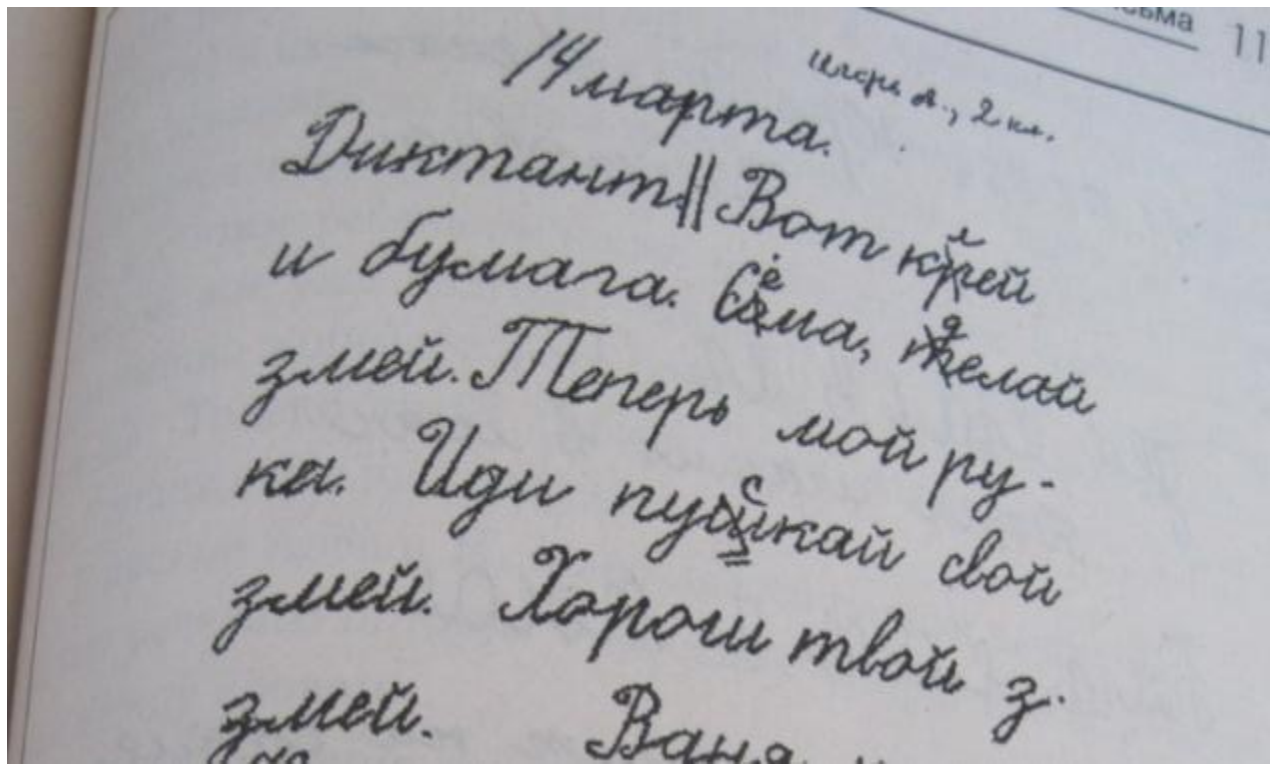 11
14 марта.
2 кл.
Диктант.|| Вот клей
и бумага. Сёма, делай
змей. Теперь мой ру-
ка. Иди пускай свой
змей. Хорош твой з.
змей. Ваня